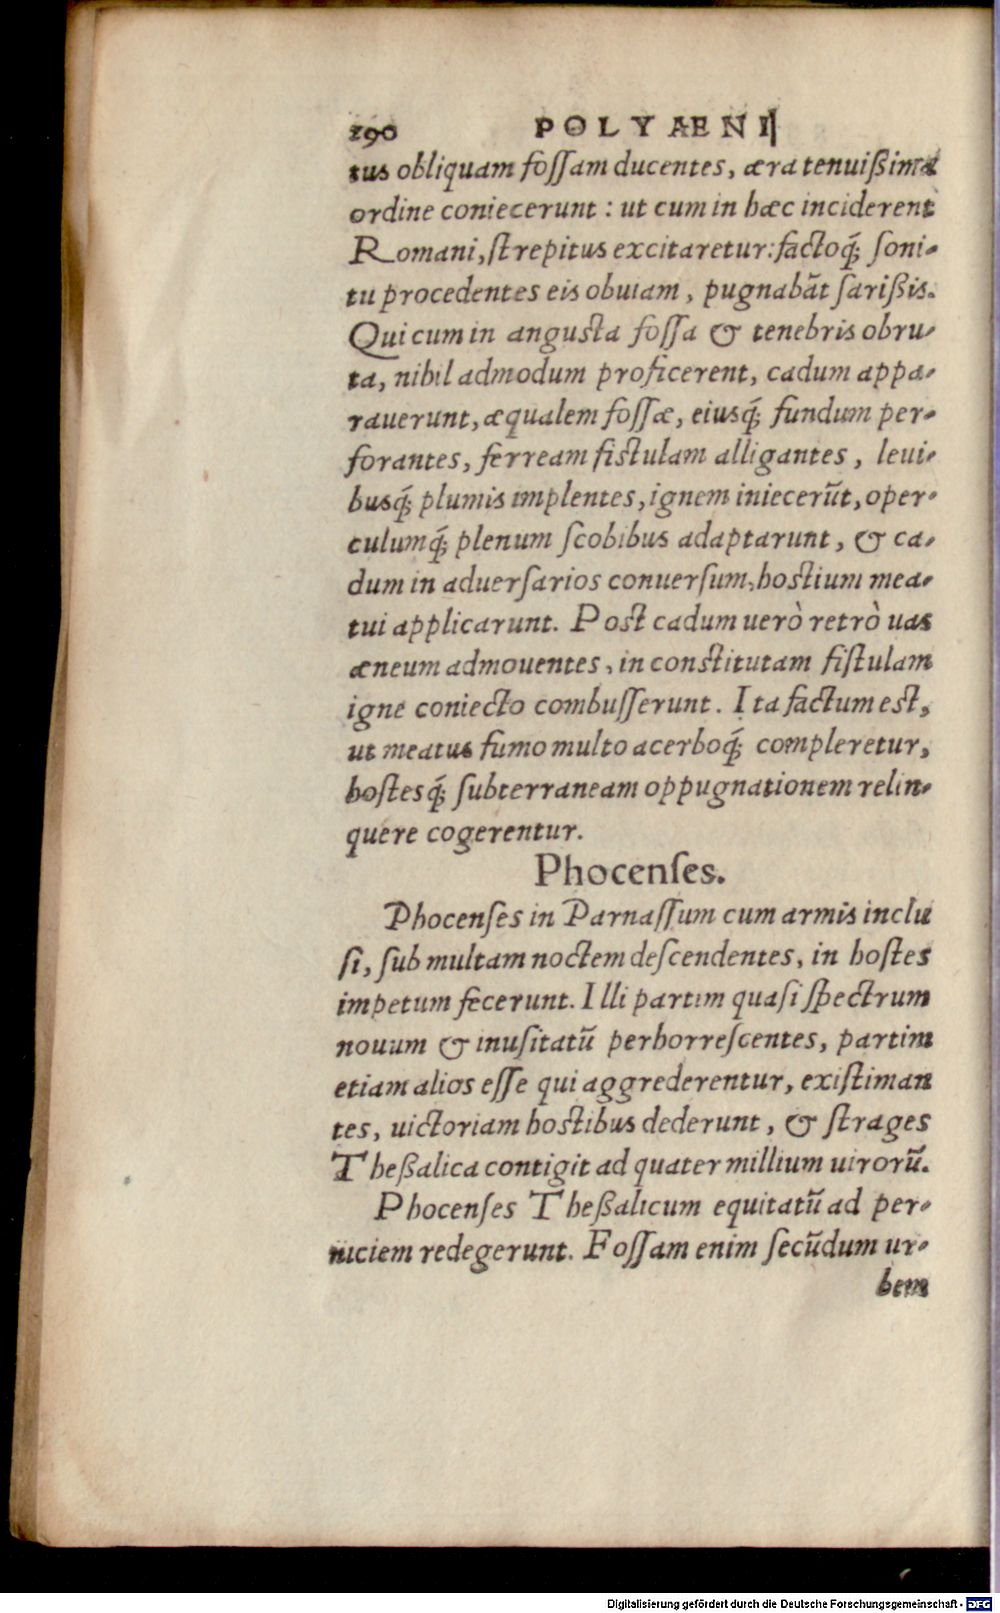 190 POLYÆNI
tus obliquam foſſam ducentes, æra tenuißima
ordine coniecerunt : ut cum in hæc inciderent
Romani, ſtrepitus excitaretur: factoq́; ſoni-
tu procedentes eis obuiam, pugnabãt ſarißis.
Qui cum in angusta foſſa & tenebris obru-
ta, nihil admodum proficerent, cadum appa-
rauerunt, æqualem foſſæ, eiusq́; fundum per-
forantes, ferream fistulam alligantes, leui-
busq́; plumis implentes, ignem iniecerũt, oper-
culumq́; plenum ſcobibus adaptarunt, & ca-
dum in aduerſarios conuerſum, hostium mea-
tui applicarunt. Post cadum uerò retrò uas
æneum admouentes, in constitutam fiſtulam
igne coniecto combuſſerunt. Ita factum est,
ut meatus fumo multo acerboq́; compleretur,
hoſtesq́; ſubterraneam oppugnationem relin-
quere cogerentur.
Phocenſes.
Phocenſes in Parnaſſum cum armis inclu
ſi, ſub multam noctem deſcendentes, in hoſtes
impetum fecerunt. Illi partim quaſi ſpectrum
nouum & inuſitatũ perhorreſcentes, partim
etiam alios eſſe qui aggrederentur, exiſtiman
tes, uictoriam hostibus dederunt, & ſtrages
Theßalica contigit ad quater millium uirorũ.
Phocenſes Theßalicum equitatũ ad per-
niciem redegerunt. Foſſam enim ſecũdum ur-
bem
Digitalisierung gefördert durch die Deutsche Forschungsgemeinschaft - DFG